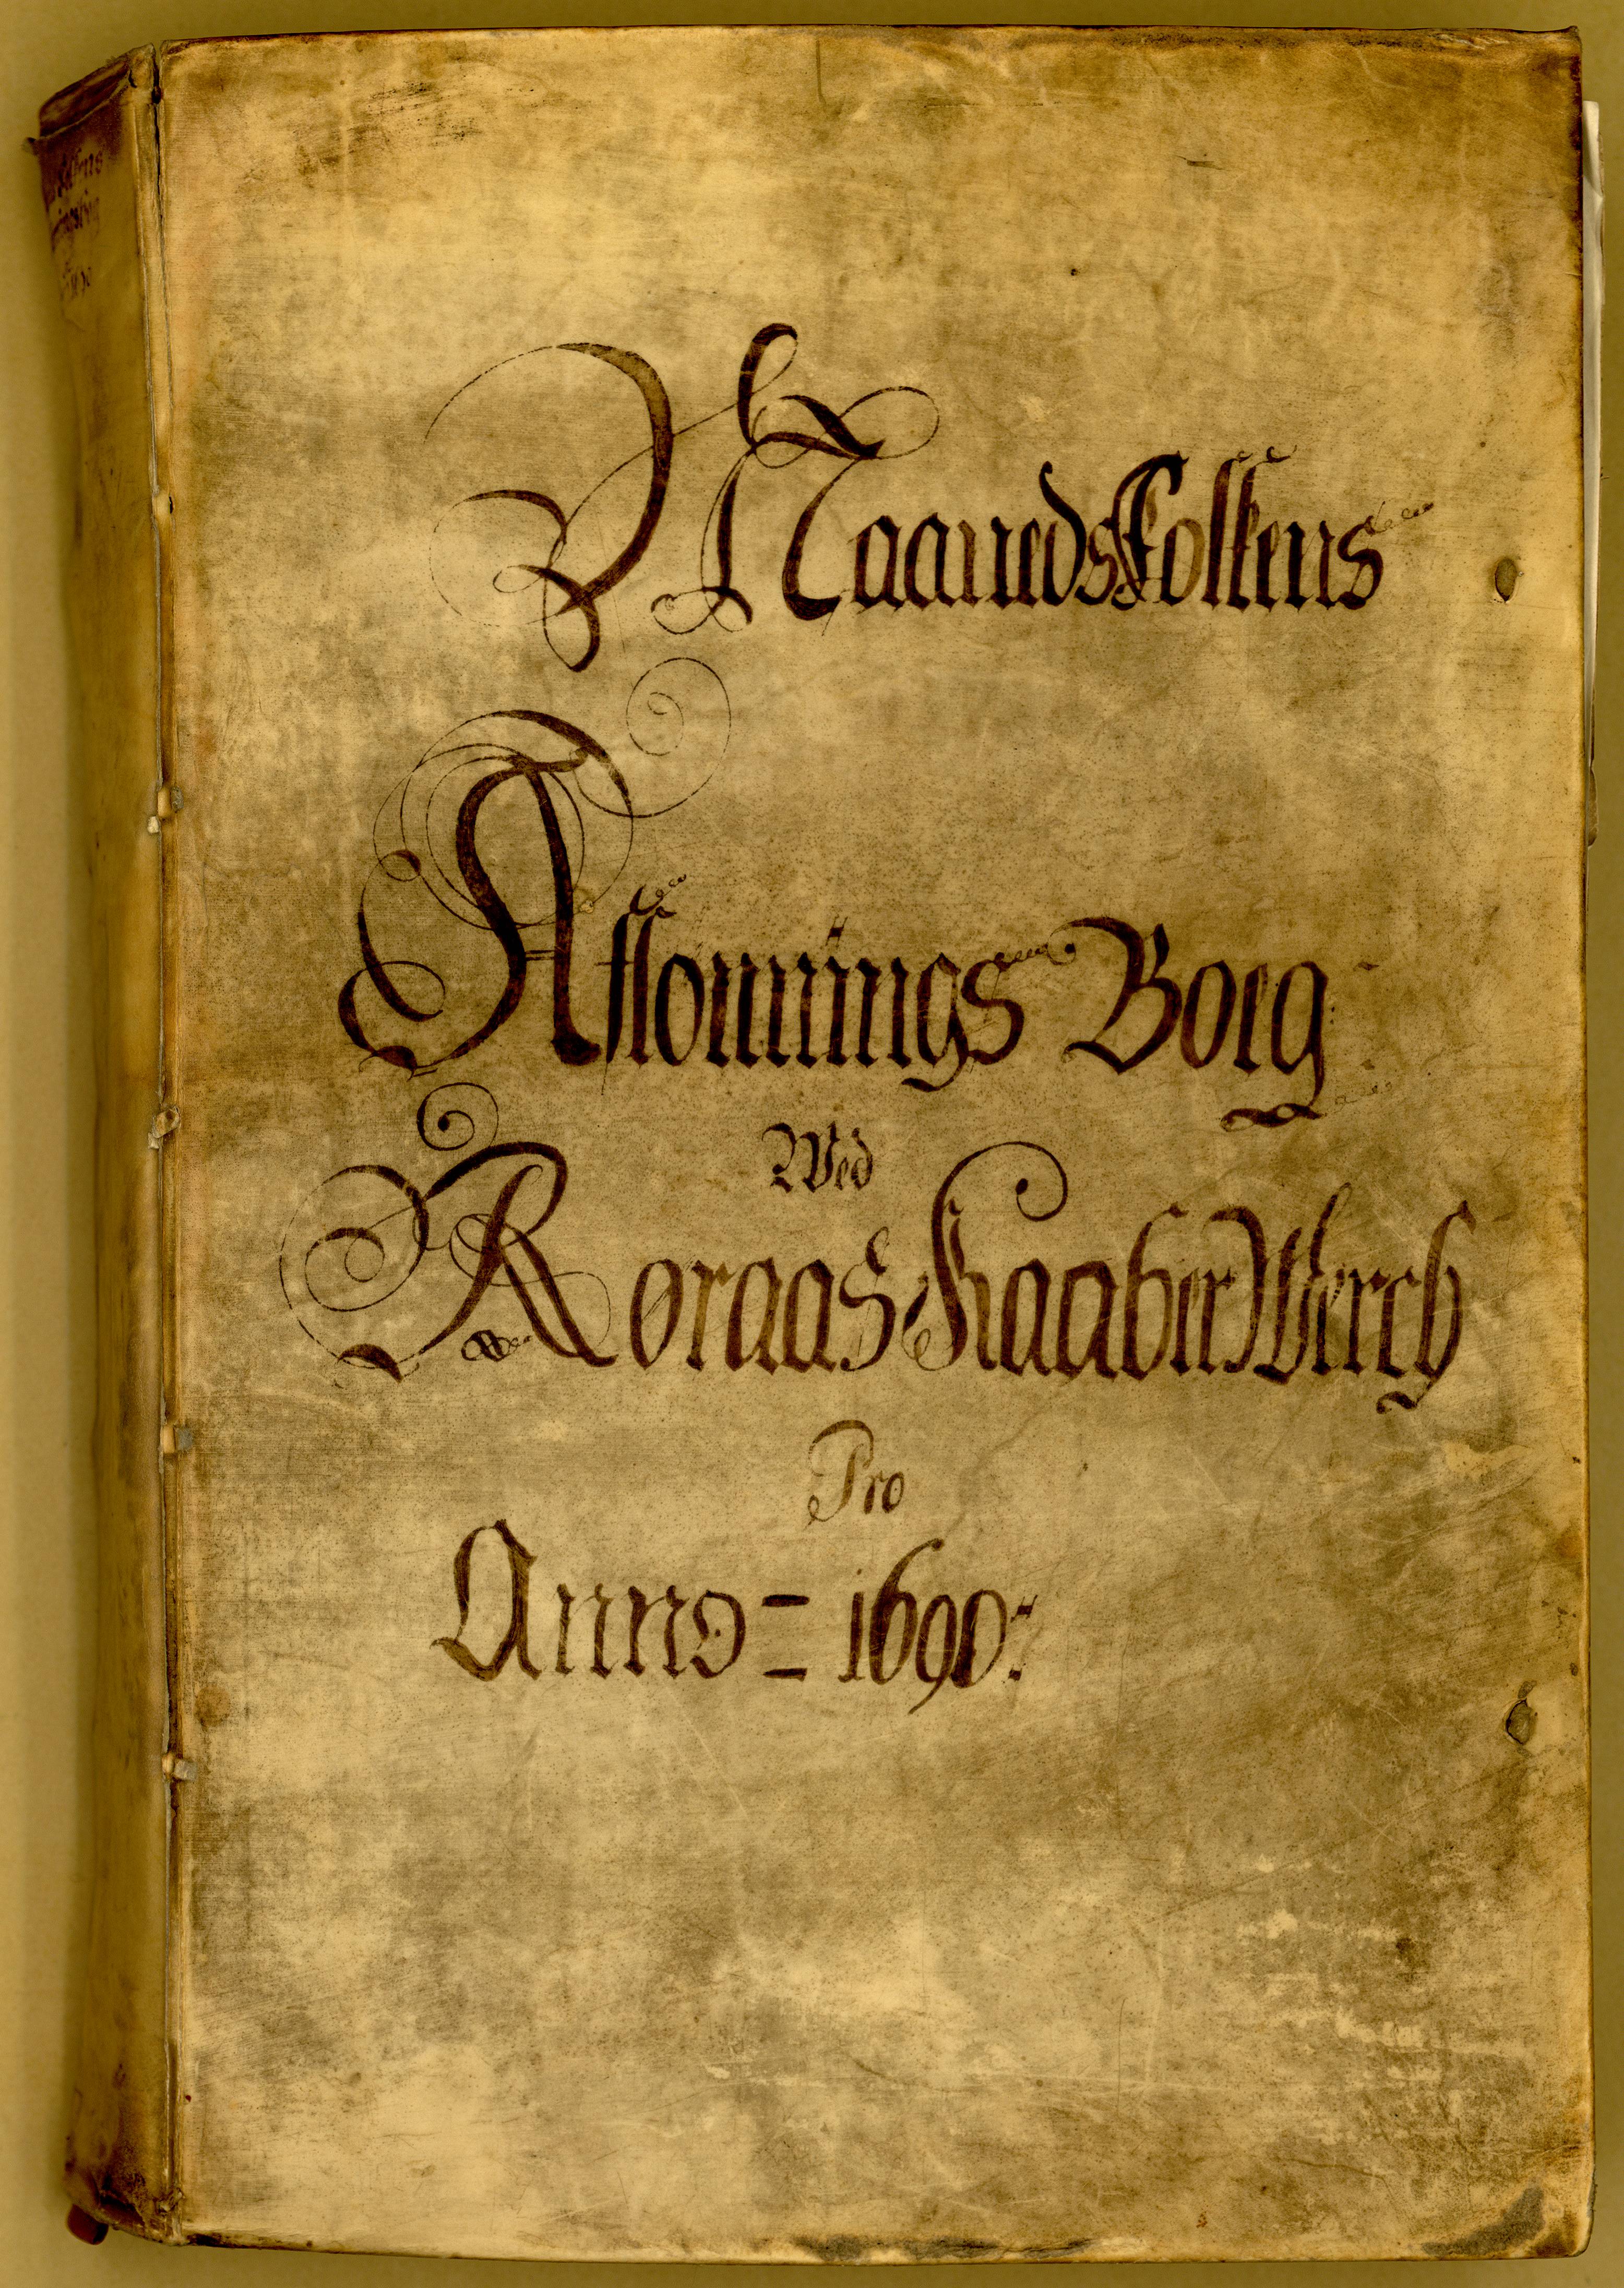 MaanedsFolkens
Aflönnings Boeg
Wed
Røraas Kaaber Werch
Pro
Anno = 1690: